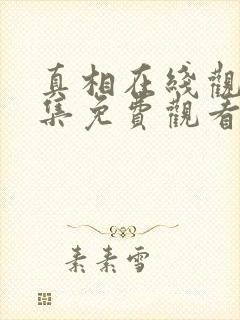 真相在綫觀
集免費觀看
素素雪